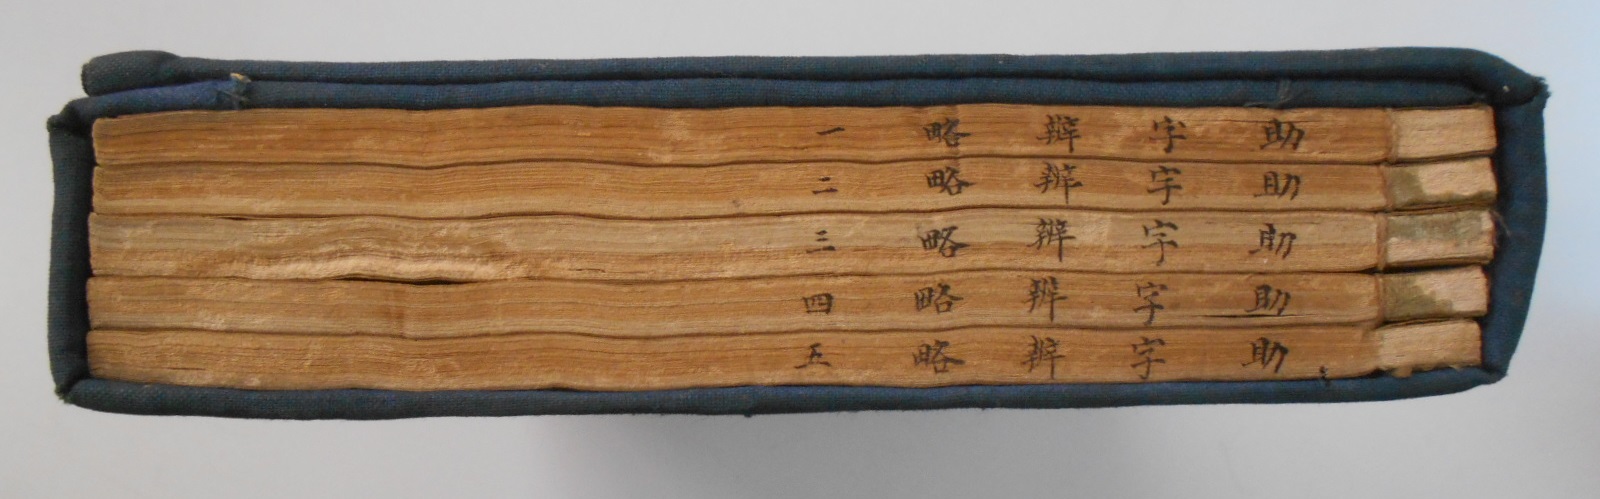 助字辧略一
助字辧略二
助字辧略三
助字辧略四
助字辧略五